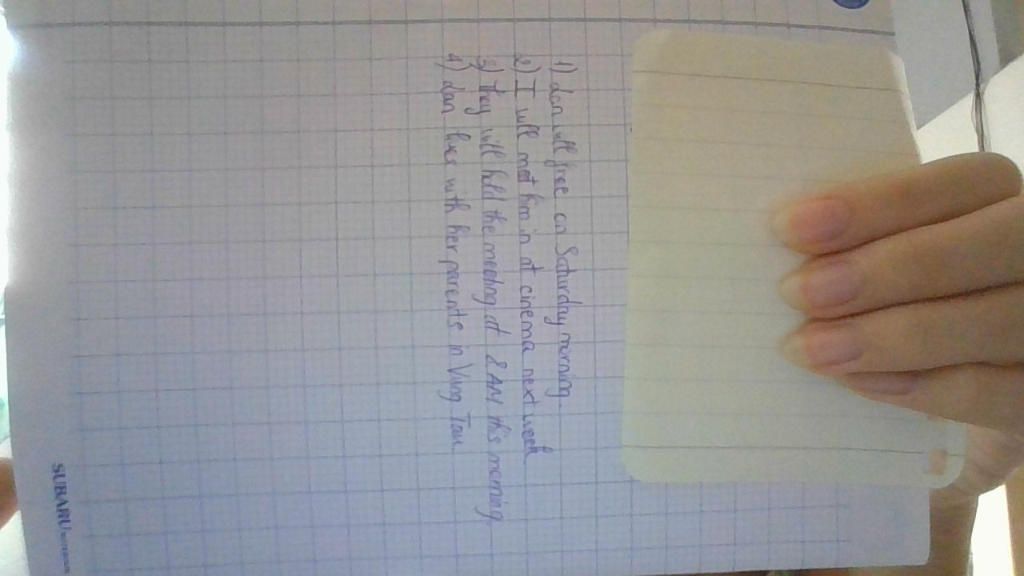 1) Lan will free on Saturday morning.
2) I will met him in at cinema next week
3) They will hold the meeting at 8 AM this morning.
4) Lan lives with her parents in Vung Tau
SUBARU